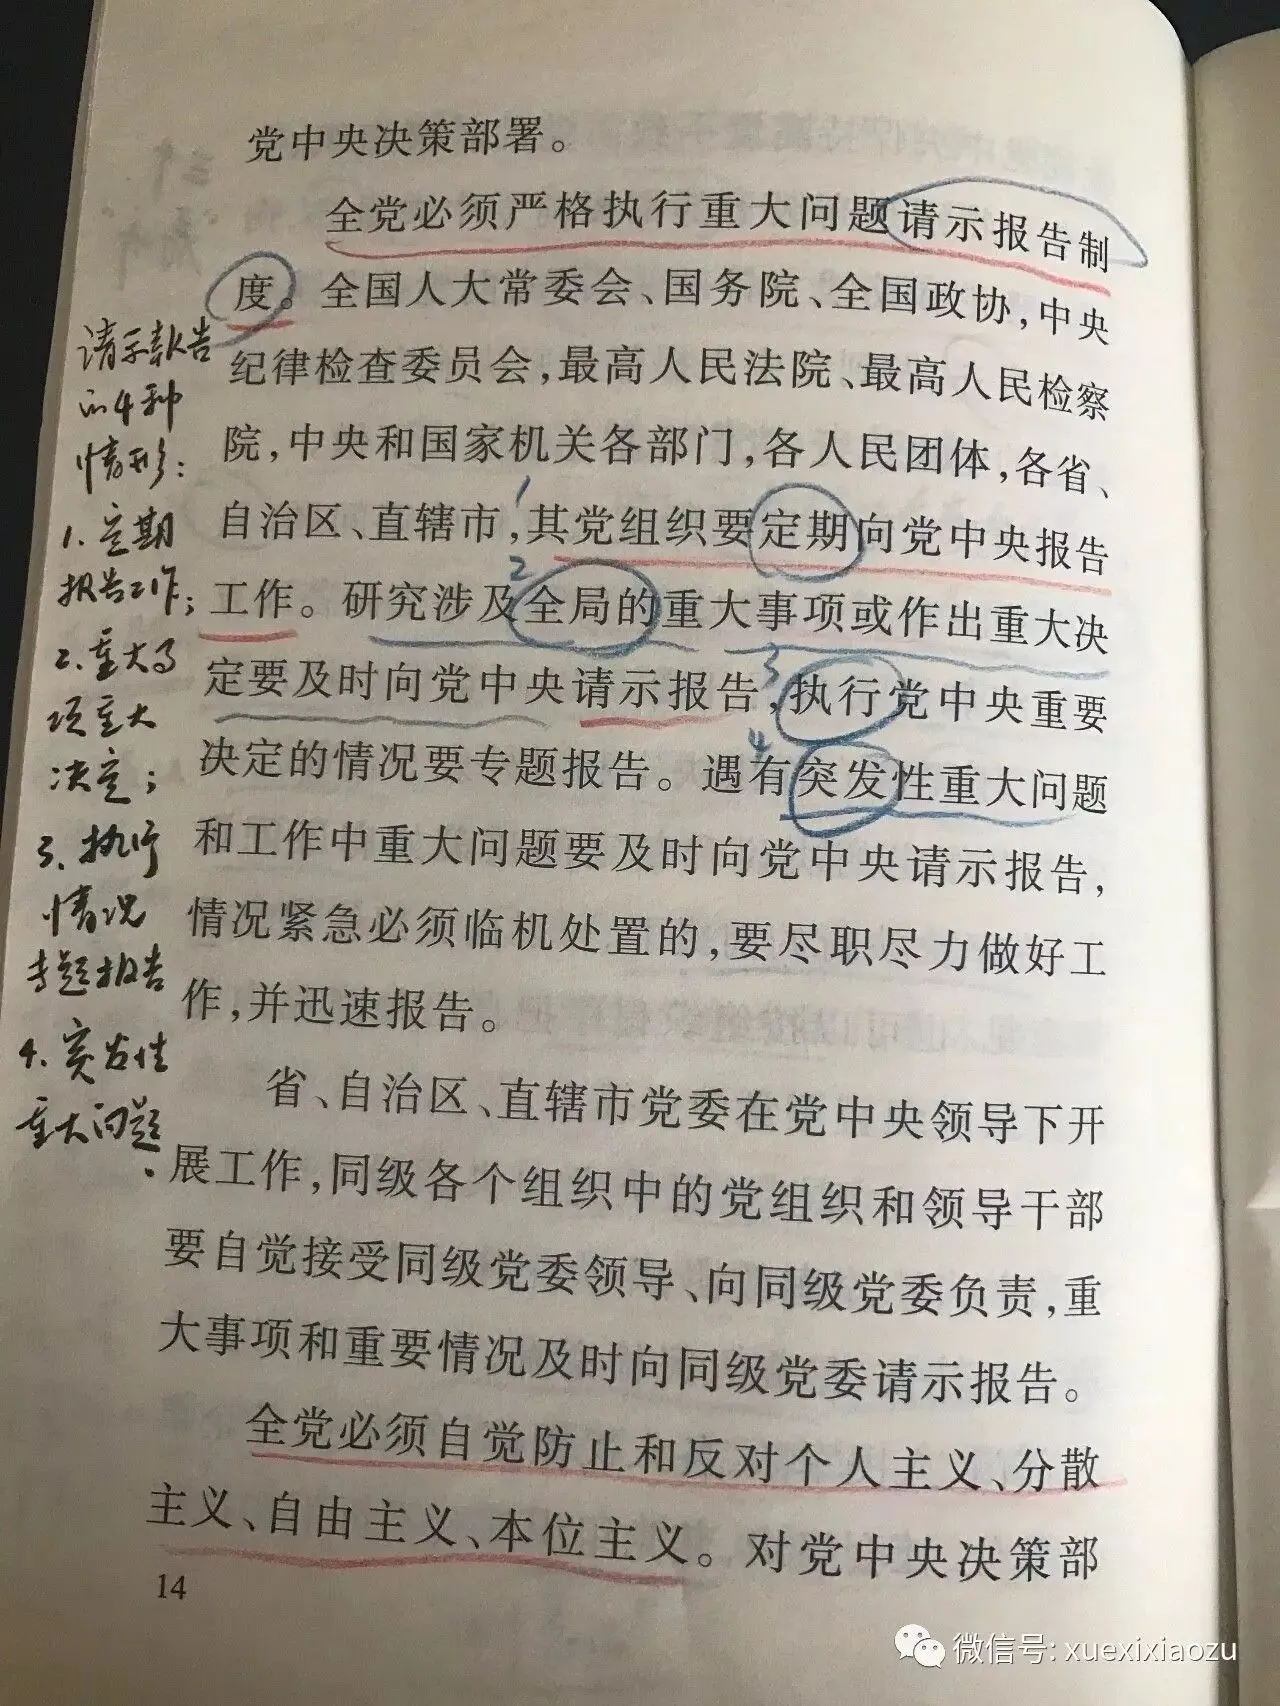 党中央决策部署。
全党必须严格执行重大问题请示报告制
度。全国人大常委会、国务院、全国政协,中央
纪律检查委员会,最高人民法院、最高人民检察
院,中央和国家机关各部门,各人民团体,各省、
自治区、直辖市,其党组织要定期向党中央报告
工作。研究涉及全局的重大事项或作出重大决
定要及时向党中央请示报告,执行党中央重要
决定的情况要专题报告。遇有突发性重大问题
和工作中重大问题要及时向党中央请示报告,
情况紧急必须临机处置的,要尽职尽力做好工
作,并迅速报告。
省、自治区、直辖市党委在党中央领导下开
展工作,同级各个组织中的党组织和领导干部
要自觉接受同级党委领导、向同级党委负责,重
大事项和重要情况及时向同级党委请示报告。
全党必须自觉防止和反对个人主义、分散
主义、自由主义、本位主义。对党中央决策部
14
请示报告
的4种
情形:
1. 定期
报告工作;
2. 重大事
项重大
决定;
3、执行
情况
专题报告
4. 突发性
重大问题.
1
2
3
4
微信号: xuexixiaozu